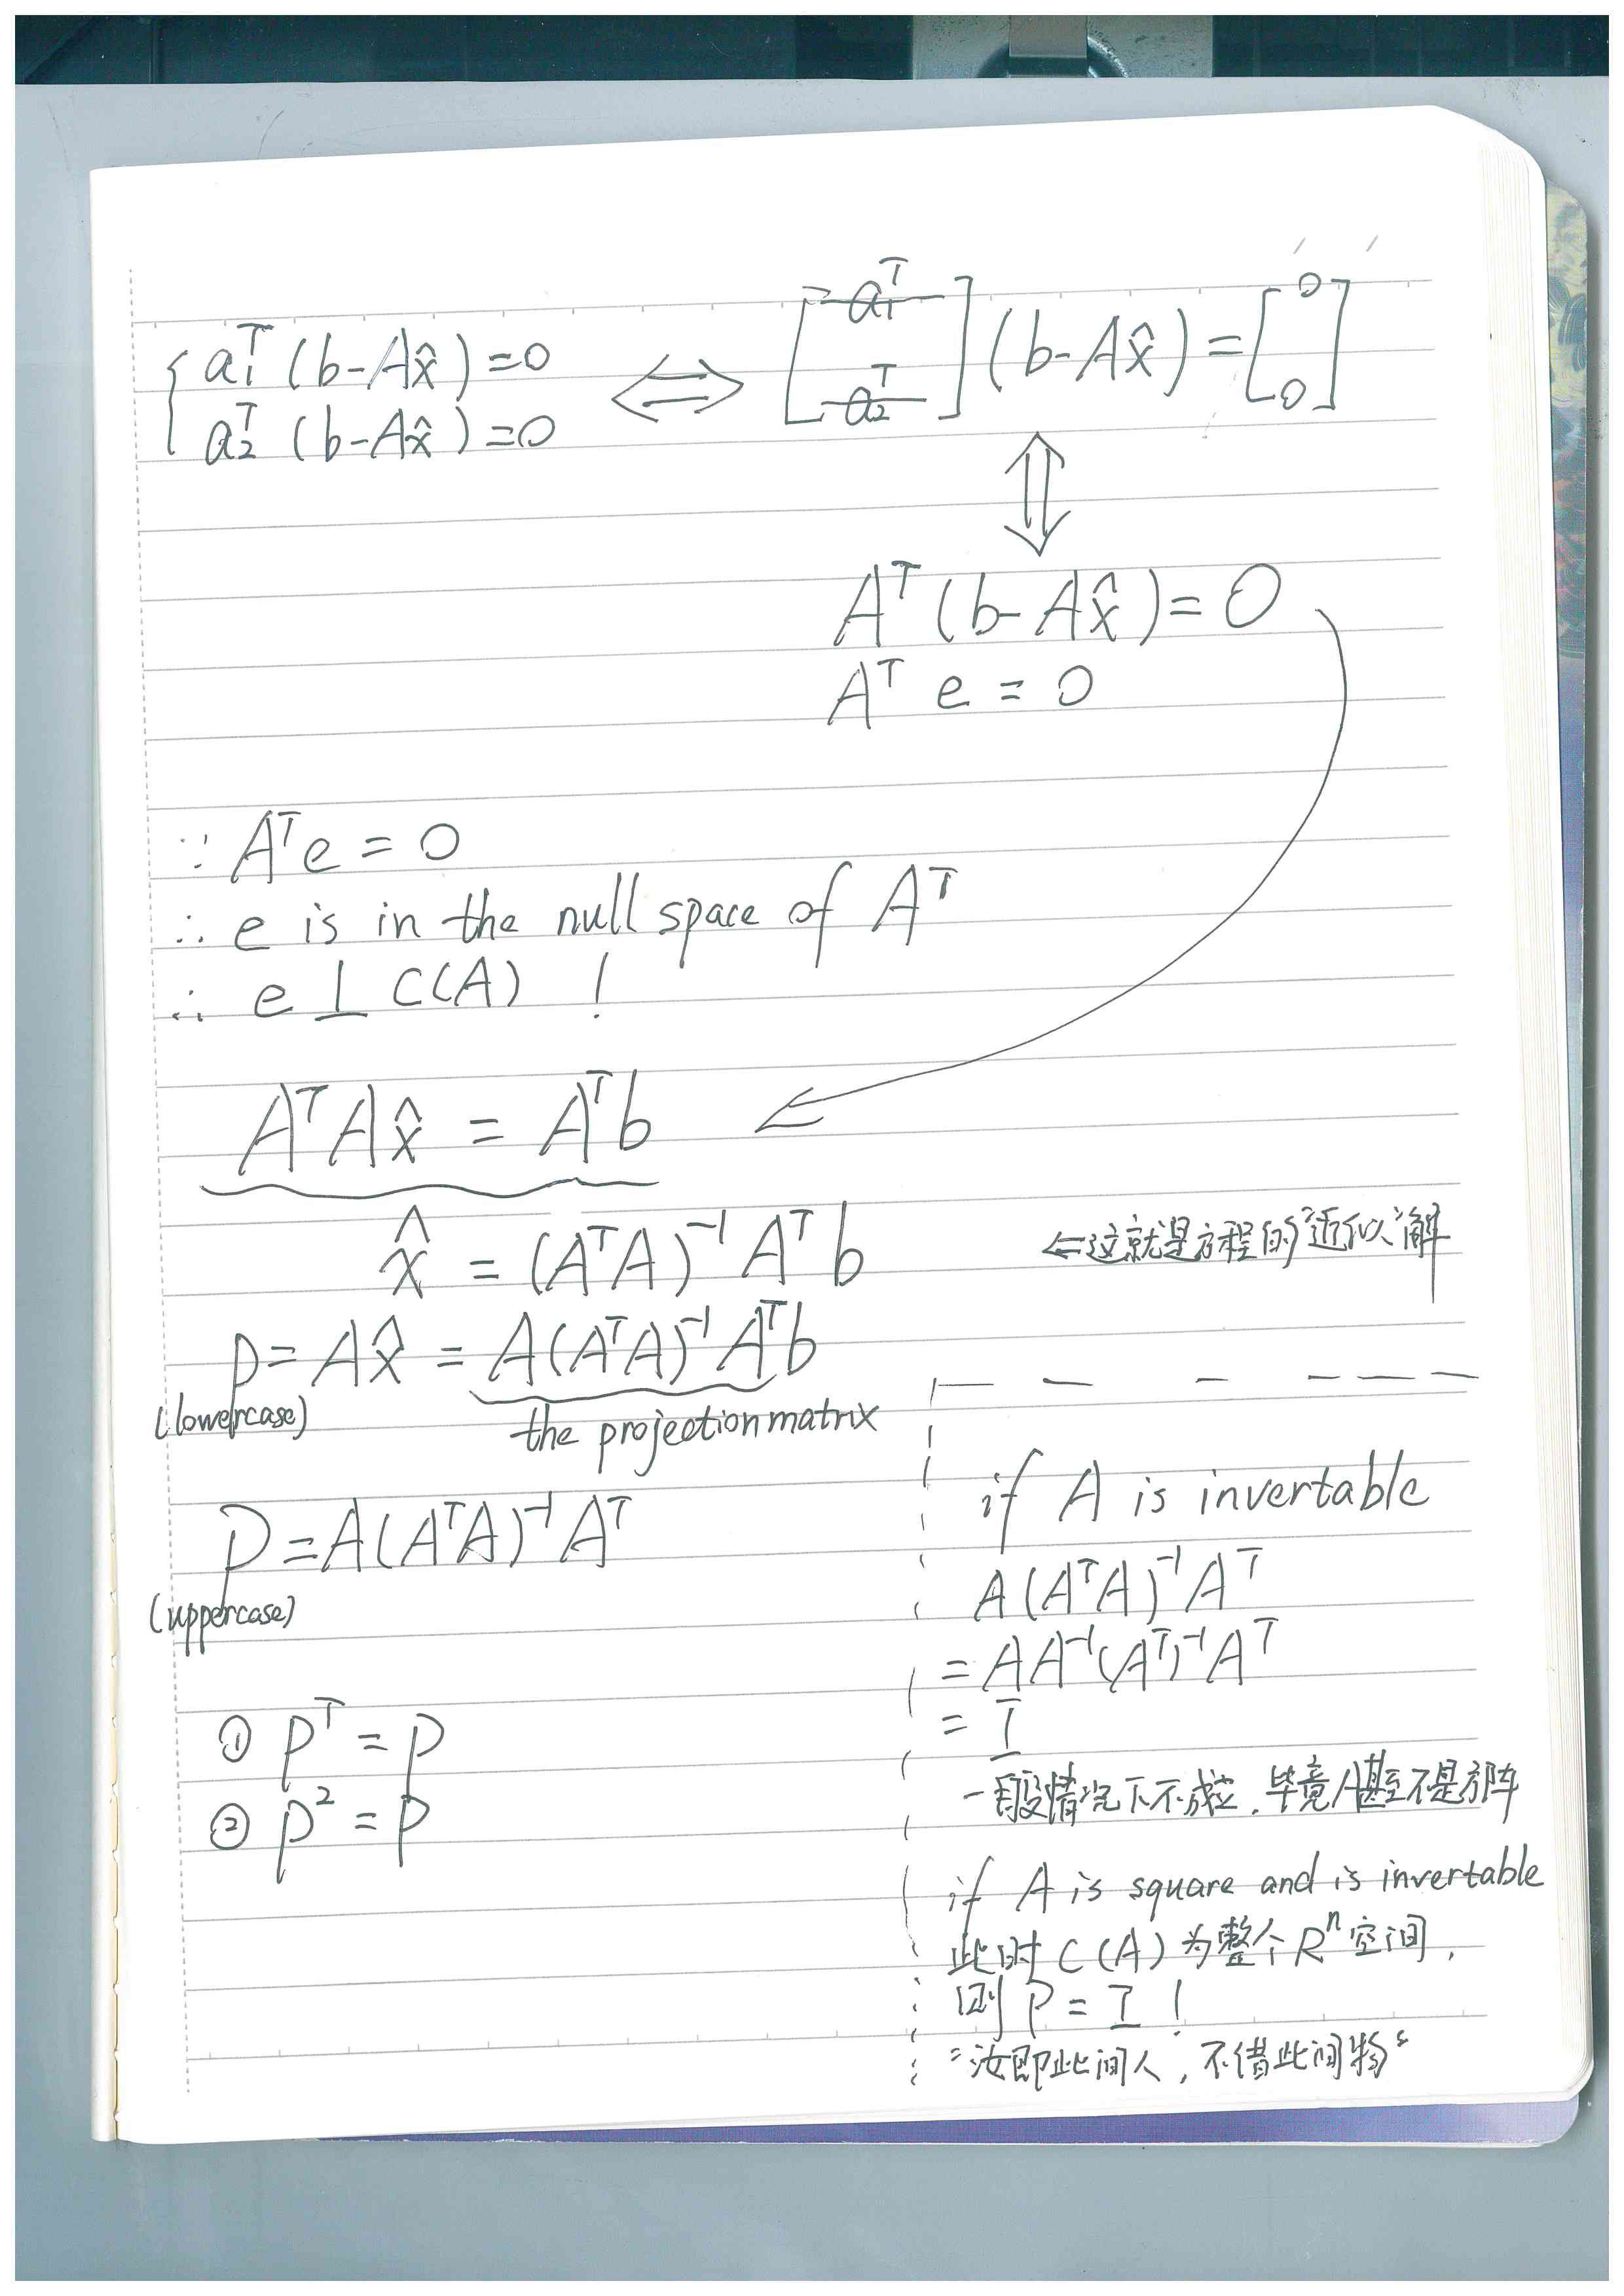 { a₁ᵀ (b-Ax̂) = 0
a₂ᵀ (b-Ax̂) = 0 ⟺ [a₁ᵀ a₂ᵀ] (b-Ax̂) = [0 0]
⇕
Aᵀ (b-Ax̂) = 0
Aᵀ e = 0
∵ Aᵀe = 0
∴ e is in the null space of Aᵀ
∴ e ⊥ C(A) !
AᵀAx̂ = Aᵀb
x̂ = (AᵀA)⁻¹ Aᵀ b ⇐这就是方程的"近似"解
p = Ax̂ = A(AᵀA)⁻¹Aᵀb
(lowercase) the projection matrix
P = A(AᵀA)⁻¹Aᵀ
(uppercase)
① Pᵀ = P
② P² = P
if A is invertable
A(AᵀA)⁻¹Aᵀ
= AA⁻¹(Aᵀ)⁻¹Aᵀ
= I
一般情况下不成立,毕竟A甚至不是方阵
if A is square and is invertable
此时 C(A) 为整个 Rⁿ 空间,
则 P = I !
"汝即此间人,不借此间物"